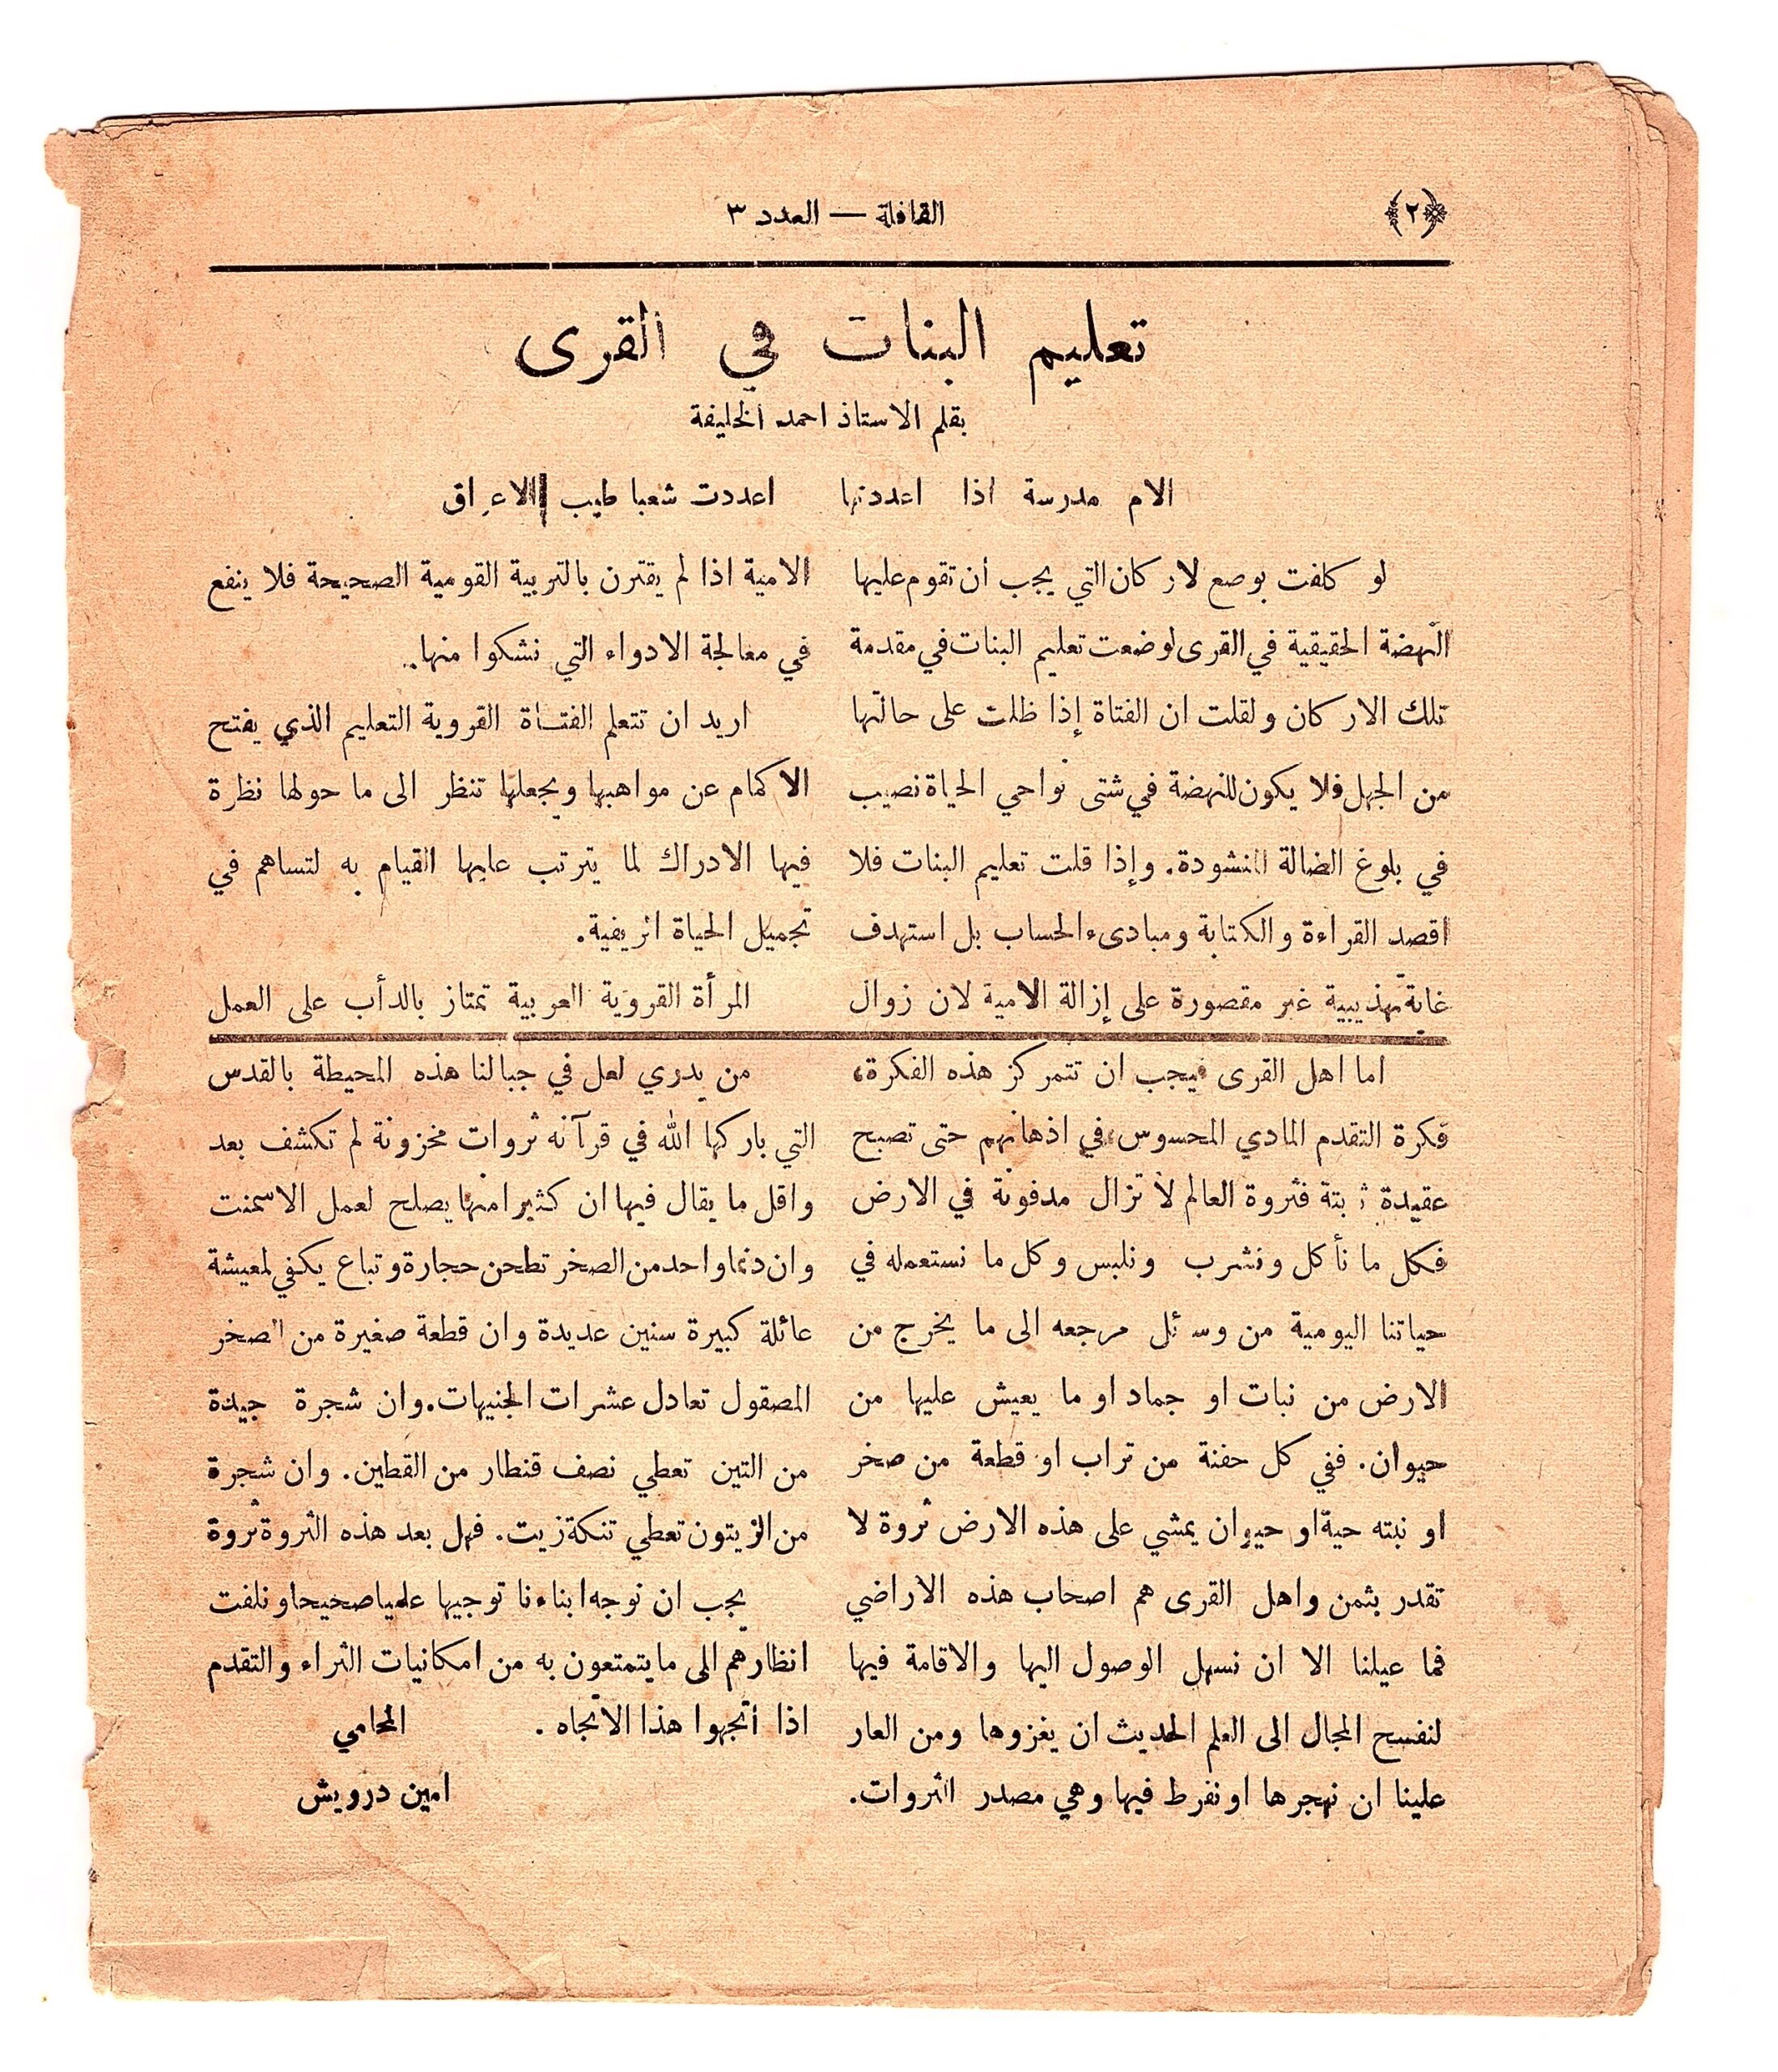 ﴿٢﴾
القافلة — العدد ٣
تعليم البنات في القرى
بقلم الاستاذ احمد الخليفة
الام مدرسة اذا اعددتها اعددت شعبا طيب الاعراق
لو كلفت بوضع لاركان التي يجب ان تقوم عليها
النهضة الحقيقية في القرى لوضعت تعليم البنات في مقدمة
تلك الاركان ولقلت ان الفتاة إذا ظلت على حالتها
من الجهل فلا يكون للنهضة في شتى نواحي الحياة نصيب
في بلوغ الضالة المنشودة. وإذا قلت تعليم البنات فلا
اقصد القراءة والكتابة ومبادىء الحساب بل استهدف
غاية تهذيبية غير مقصورة على إزالة الامية لان زوال
الامية اذا لم يقترن بالتربية القومية الصحيحة فلا ينفع
في معالجة الادواء التي نشكوا منها..
اريد ان تتعلم الفتاة القروية التعليم الذي يفتح
الاكمام عن مواهبها ويجعلها تنظر الى ما حولها نظرة
فيها الادراك لما يترتب عليها القيام به لتساهم في
تجميل الحياة الريفية.
المرأة القروية العربية تمتاز بالدأب على العمل
اما اهل القرى فيجب ان تتمركز هذه الفكرة،
فكرة التقدم المادي المحسوس، في اذهانهم حتى تصبح
عقيدة ثابتة فثروة العالم لا تزال مدفونة في الارض
فكل ما نأكل ونشرب ونلبس وكل ما نستعمله في
حياتنا اليومية من وسائل مرجعه الى ما يخرج من
الارض من نبات او جماد او ما يعيش عليها من
حيوان. ففي كل حفنة من تراب او قطعة من صخر
او نبته حية او حيوان يمشي على هذه الارض ثروة لا
تقدر بثمن واهل القرى هم اصحاب هذه الاراضي
فما عيلنا الا ان نسهل الوصول اليها والاقامة فيها
لنفسح المجال الى العلم الحديث ان يغزوها ومن العار
علينا ان نهجرها او نفرط فيها وهي مصدر الثروات.
من يدري لعل في جبالنا هذه المحيطة بالقدس
التي باركها الله في قرآنه ثروات مخزونة لم تكشف بعد
واقل ما يقال فيها ان كثيرا منها يصلح لعمل الاسمنت
وان دنما واحد من الصخر تطحن حجارة وتباع يكفي لمعيشة
عائلة كبيرة سنين عديدة وان قطعة صغيرة من الصخر
المصقول تعادل عشرات الجنيهات. وان شجرة جيدة
من التين تعطي نصف قنطار من القطين. وان شجرة
من الزيتون تعطي تنكة زيت. فهل بعد هذه الثروة ثروة
يجب ان نوجه ابناءنا توجيها علميا صحيحا ونلفت
انظارهم الى ما يتمتعون به من امكانيات الثراء والتقدم
اذا اتجهوا هذا الاتجاه. المحامي
امين درويش